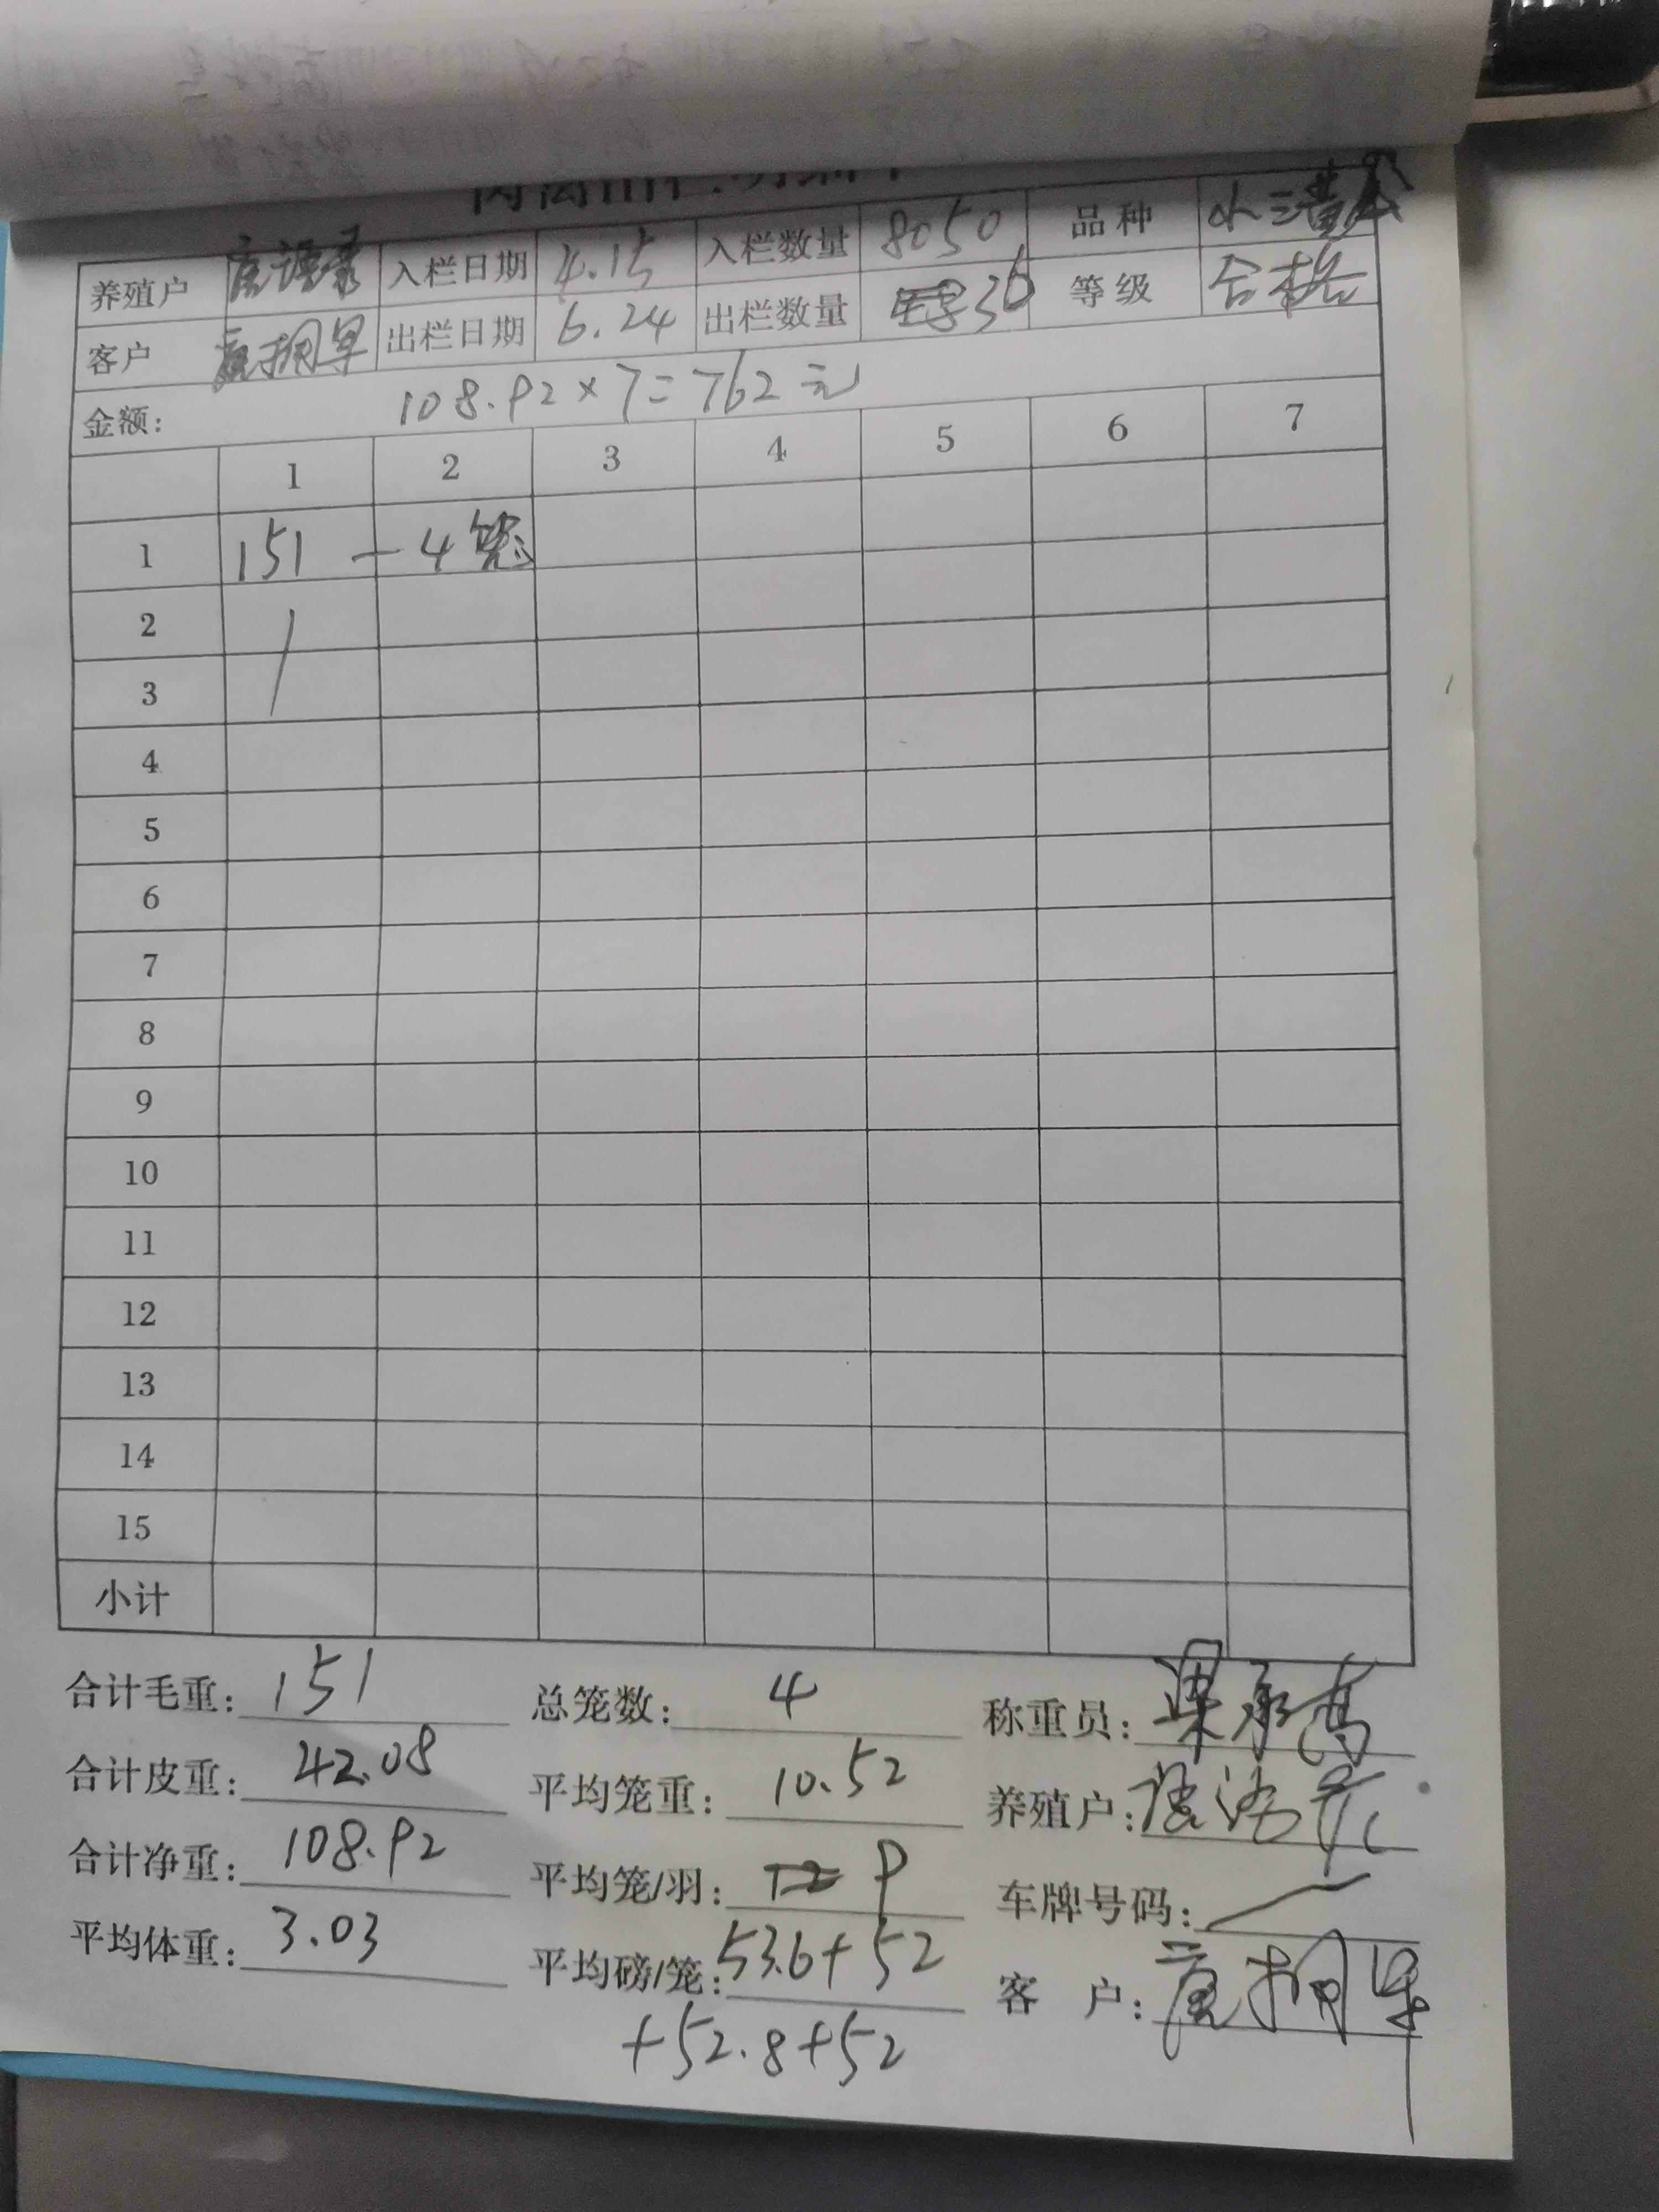 养殖户 入栏日期 4.15 入栏数量 8050 品种
客户 出栏日期 6.24 出栏数量 36 等级 合格
金额: 108.92×7=762元
1 2 3 4 5 6 7
1 151 — 4笼
2
3
4
5
6
7
8
9
10
11
12
13
14
15
小计
合计毛重: 151 总笼数: 4 称重员:
合计皮重: 42.08 平均笼重: 10.52 养殖户:
合计净重: 108.92 平均笼/羽: 9 车牌号码:
平均体重: 3.03 平均磅/笼: 53.6+52 客 户:
+52.8+52